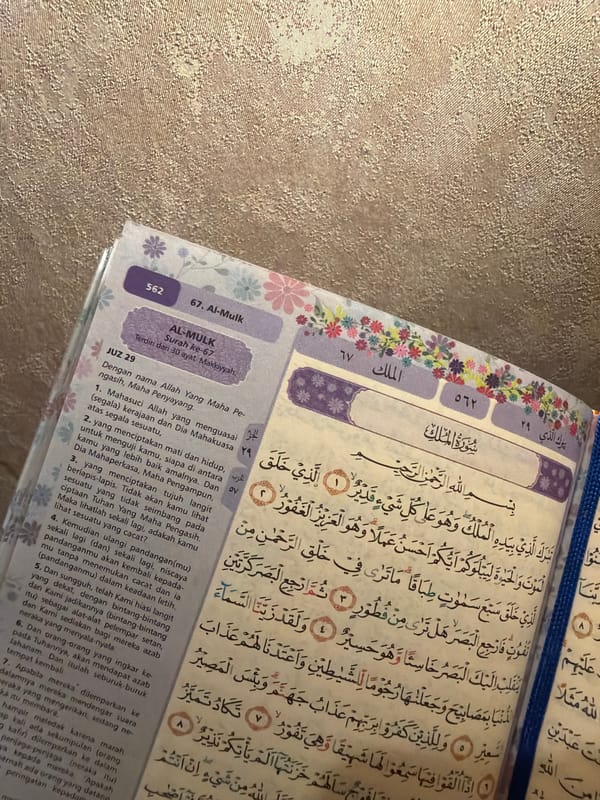 562
67. Al-Mulk
AL-MULK
Surah ke-67
Terdiri dari 30 ayat. Makkiyyah.
JUZ 29
Dengan nama Allah Yang Maha Pe-
ngasih, Maha Penyayang.
1. Mahasuci Allah yang menguasai
(segala) kerajaan dan Dia Mahakuasa
atas segala sesuatu,
2. yang menciptakan mati dan hidup,
untuk menguji kamu, siapa di antara
kamu yang lebih baik amalnya. Dan
Dia Mahaperkasa, Maha Pengampun,
3. yang menciptakan tujuh langit
berlapis-lapis. Tidak akan kamu lihat
sesuatu yang tidak seimbang pada
ciptaan Tuhan Yang Maha Pengasih.
Maka lihatlah sekali lagi, adakah kamu
lihat sesuatu yang cacat?
4. Kemudian ulangi pandangan(mu)
sekali lagi (dan) sekali lagi, niscaya
pandanganmu akan kembali kepada-
mu tanpa menemukan cacat dan ia
(pandanganmu) dalam keadaan letih.
5. Dan sungguh, telah Kami hiasi langit
yang dekat, dengan bintang-bintang
dan Kami jadikannya (bintang-bintang
itu) sebagai alat-alat pelempar setan,
dan Kami sediakan bagi mereka azab
neraka yang menyala-nyala.
6. Dan orang-orang yang ingkar ke-
pada Tuhannya, akan mendapat azab
Jahanam. Dan itulah seburuk-buruk
tempat kembali.
7. Apabila mereka dilemparkan ke
dalamnya mereka mendengar suara
neraka yang mengerikan, sedang ne-
الجزء
٢٩
حزب
٥٧
٦٧
الملك
٥٦٢
٢٩
تبرك الذي
سُوْرَةُ الْمُلْكِ
بِسْمِ اللّٰهِ الرَّحْمٰنِ الرَّحِيْمِ
تَبٰرَكَ الَّذِيْ بِيَدِهِ الْمُلْكُ وَهُوَ عَلٰى كُلِّ شَيْءٍ قَدِيْرٌۙ ١ اۨلَّذِيْ خَلَقَ
الْمَوْتَ وَالْحَيٰوةَ لِيَبْلُوَكُمْ اَيُّكُمْ اَحْسَنُ عَمَلًاۗ وَهُوَ الْعَزِيْزُ الْغَفُوْرُۙ ٢
الَّذِيْ خَلَقَ سَبْعَ سَمٰوٰتٍ طِبَاقًاۗ مَا تَرٰى فِيْ خَلْقِ الرَّحْمٰنِ مِنْ
تَفٰوُتٍۗ فَارْجِعِ الْبَصَرَۙ هَلْ تَرٰى مِنْ فُطُوْرٍ ٣ ثُمَّ ارْجِعِ الْبَصَرَ كَرَّتَيْنِ
يَنْقَلِبْ اِلَيْكَ الْبَصَرُ خَاسِئًا وَّهُوَ حَسِيْرٌ ٤ وَلَقَدْ زَيَّنَّا السَّمَاۤءَ
الدُّنْيَا بِمَصَابِيْحَ وَجَعَلْنٰهَا رُجُوْمًا لِّلشَّيٰطِيْنِ وَاَعْتَدْنَا لَهُمْ عَذَابَ
السَّعِيْرِ ٥ وَلِلَّذِيْنَ كَفَرُوْا بِرَبِّهِمْ عَذَابُ جَهَنَّمَۗ وَبِئْسَ الْمَصِيْرُ
٦ اِذَآ اُلْقُوْا فِيْهَا سَمِعُوْا لَهَا شَهِيْقًا وَّهِيَ تَفُوْرُۙ ٧ تَكَادُ تَمَيَّزُ
سَاَلَهُمْ خَزَنَتُهَآ اَلَمْ يَأْتِكُمْ نَذِيْرٌ ٨
اللّٰهُ مِنْ شَيْءٍۖ اِنْ اَنْتُمْ